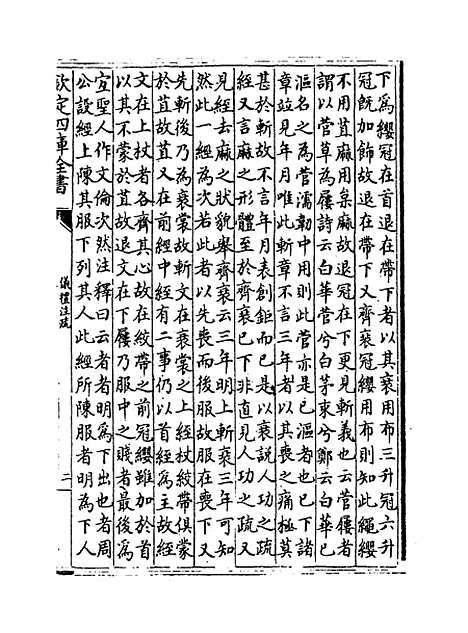 下爲纓冠在首退在帶下者以其衰用布三升冠六升
冠既加飾故退在帶下又齊衰冠纓用布則知此繩纓
不用苴麻用枲麻故退冠在下更見斬義也云菅屨者
謂以菅草爲屨詩云白華菅兮白茅束兮鄭云白華已
漚名之爲菅濡韌中用則此菅亦是已漚者也已下諸
章竝見年月唯此斬章不言三年者以其喪之痛極莫
甚於斬故不言年月表創鉅而已是以衰設人功之疏
絰又言麻之形體至於齊衰已下非直見人功之疏又
見絰去麻之狀貌舉齊衰云三年明上斬衰三年可知
然此一經爲次若此者以先喪而後服故服在喪下又
先斬後乃爲衰裳故斬文在衰裳之上絰杖絞帶俱蒙
於苴故苴又在前經中絰有二事仍以首絰爲主故絰
文在上杖者各齊其心故在絞帶之前冠纓雖加於首
以其不蒙於苴故退文在下屨乃服中之賤者最後爲
宜聖人作文倫次然注釋曰云者者明爲下出也者周
公設經上陳其服下列其人此經所陳服者明爲下人
欽定四庫全書
儀禮注疏
二